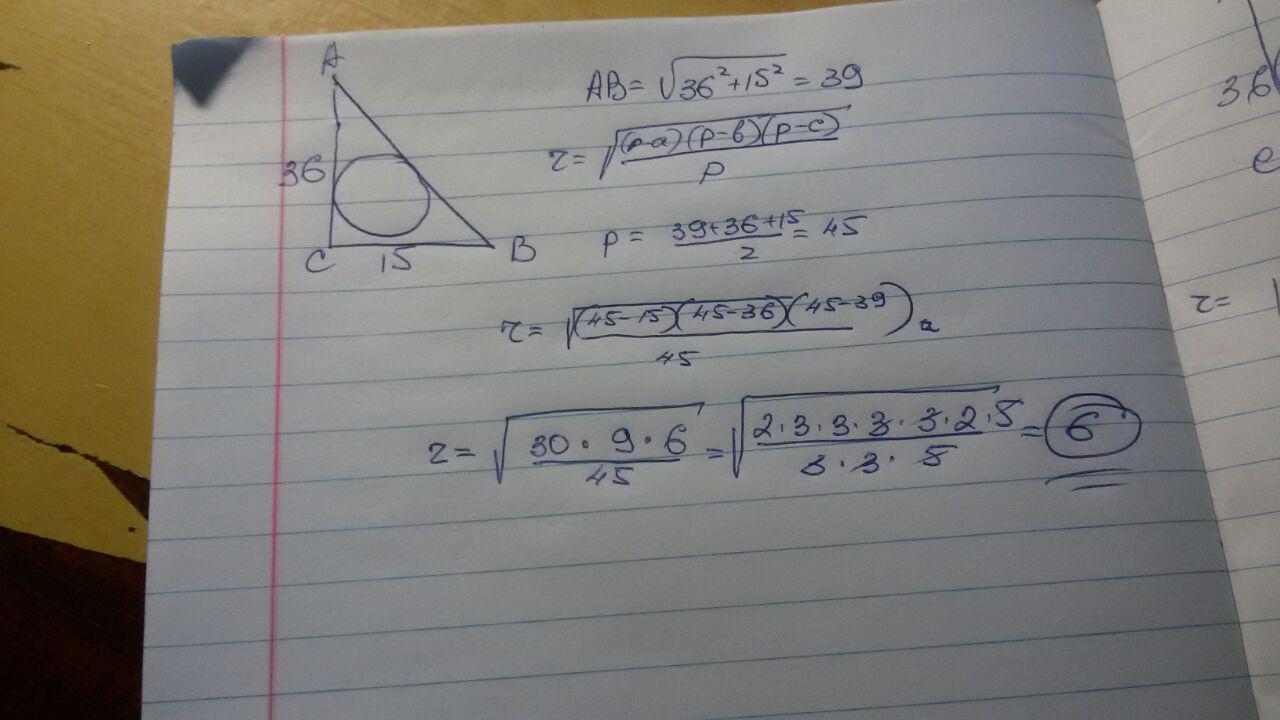 A
36
C 15 B
AB = √36²+15² = 39
r = √(p-a)(p-b)(p-c)/p
p = 39+36+15/2 = 45
r = √(45-15)(45-36)(45-39)/45
r = √30·9·6/45 = √2·3·3·3·3·2·5/3·3·5 = 6
36
e
r=